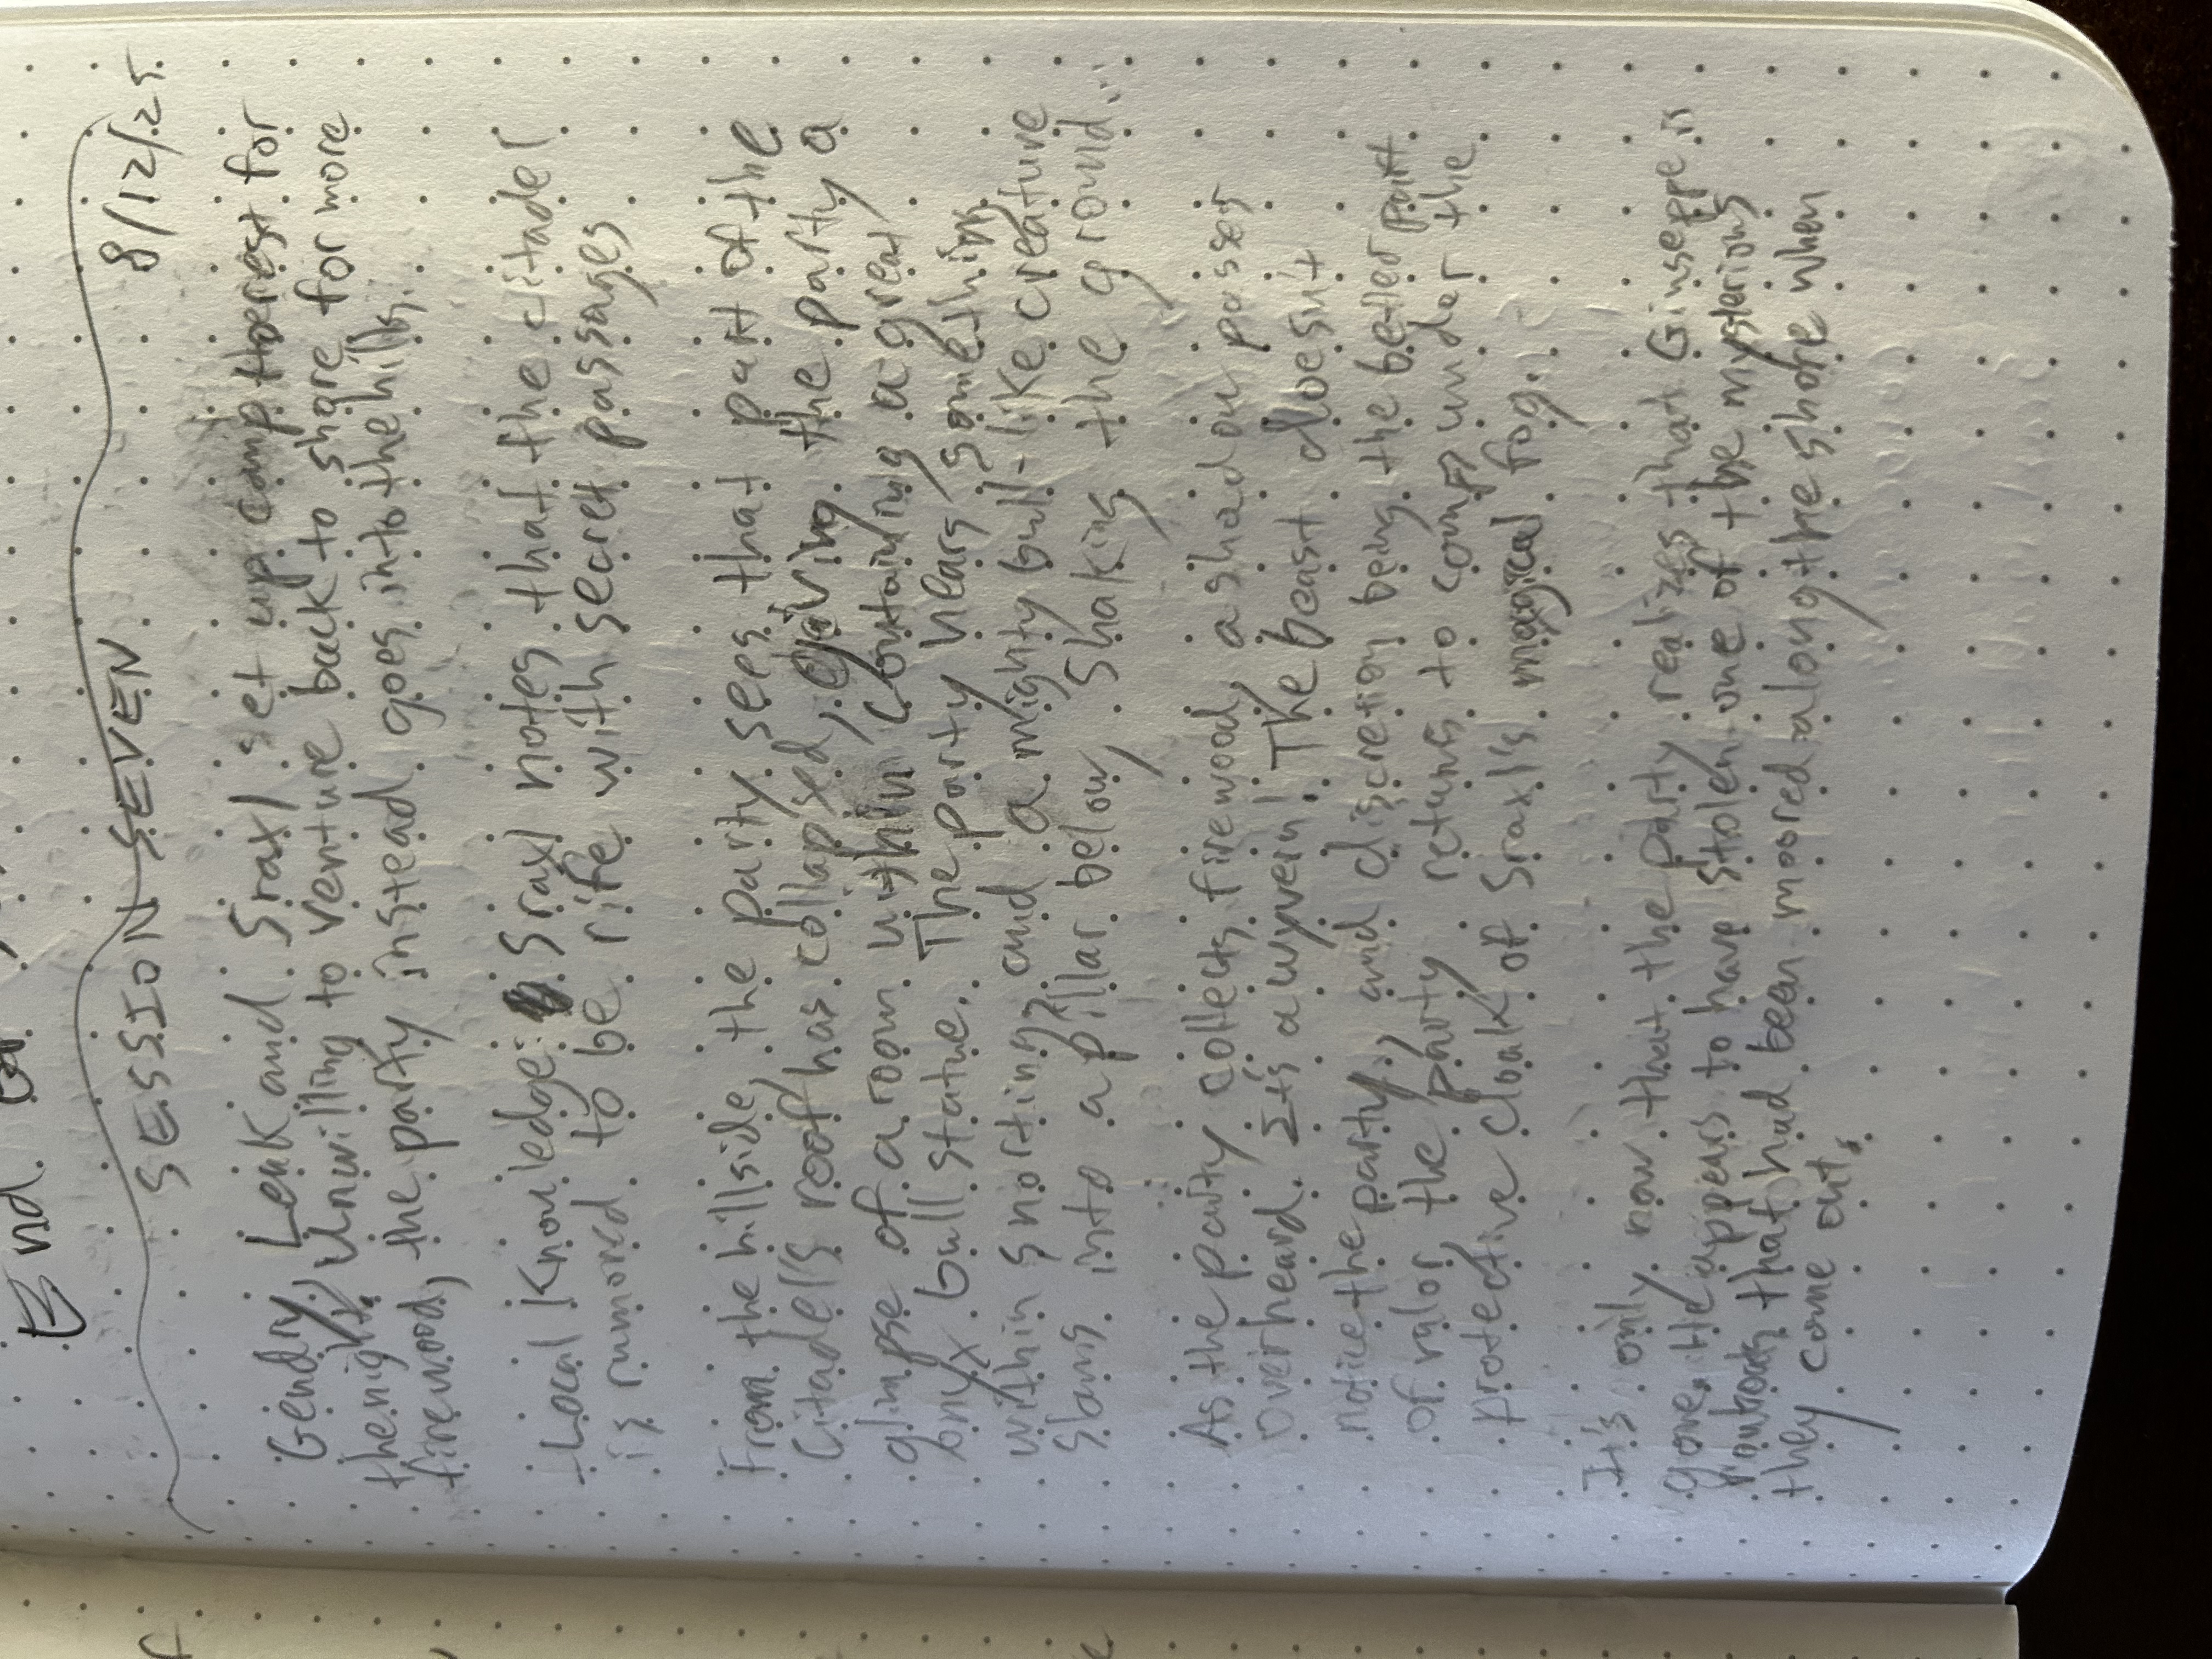 End
SESSION SEVEN 8/12/25
Gendry, Leak and Sraxl set up camp to rest for
the night. Unwilling to venture back to shore for more
firewood, the party instead goes into the hills.
+Local Knowledge: Sraxl notes that the citadel
is rumored to be rife with secret passages
From the hillside, the party sees that part of the
Citadel's roof has collapsed, giving the party a
glimpse of a room within containing a great
onyx bull statue. The party hears something
within snorting? and a mighty bull-like creature
slams into a pillar below, shaking the ground...
As the party collects firewood, a shadow passes
overheard. It's a wyvern! The beast doesn't
notice the party, and discretion being the better part
of valor, the party returns to camp under the
protective cloak of Sraxl's magical fog.
It's only now that the party realizes that Ginseppe is
gone. He appears to have stolen one of the mysterious
rowboats that had been moored along the shore when
they come out.